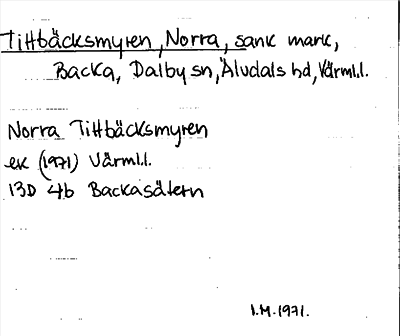 Tittbäcksmyren, Norra, sank mark,
Backa, Dalby sn, Älvdals hd, Värml.l.
Norra Tittbäcksmyren
ek (1971) Värml.l.
13D 4b Backasätern
I.M. 1971.